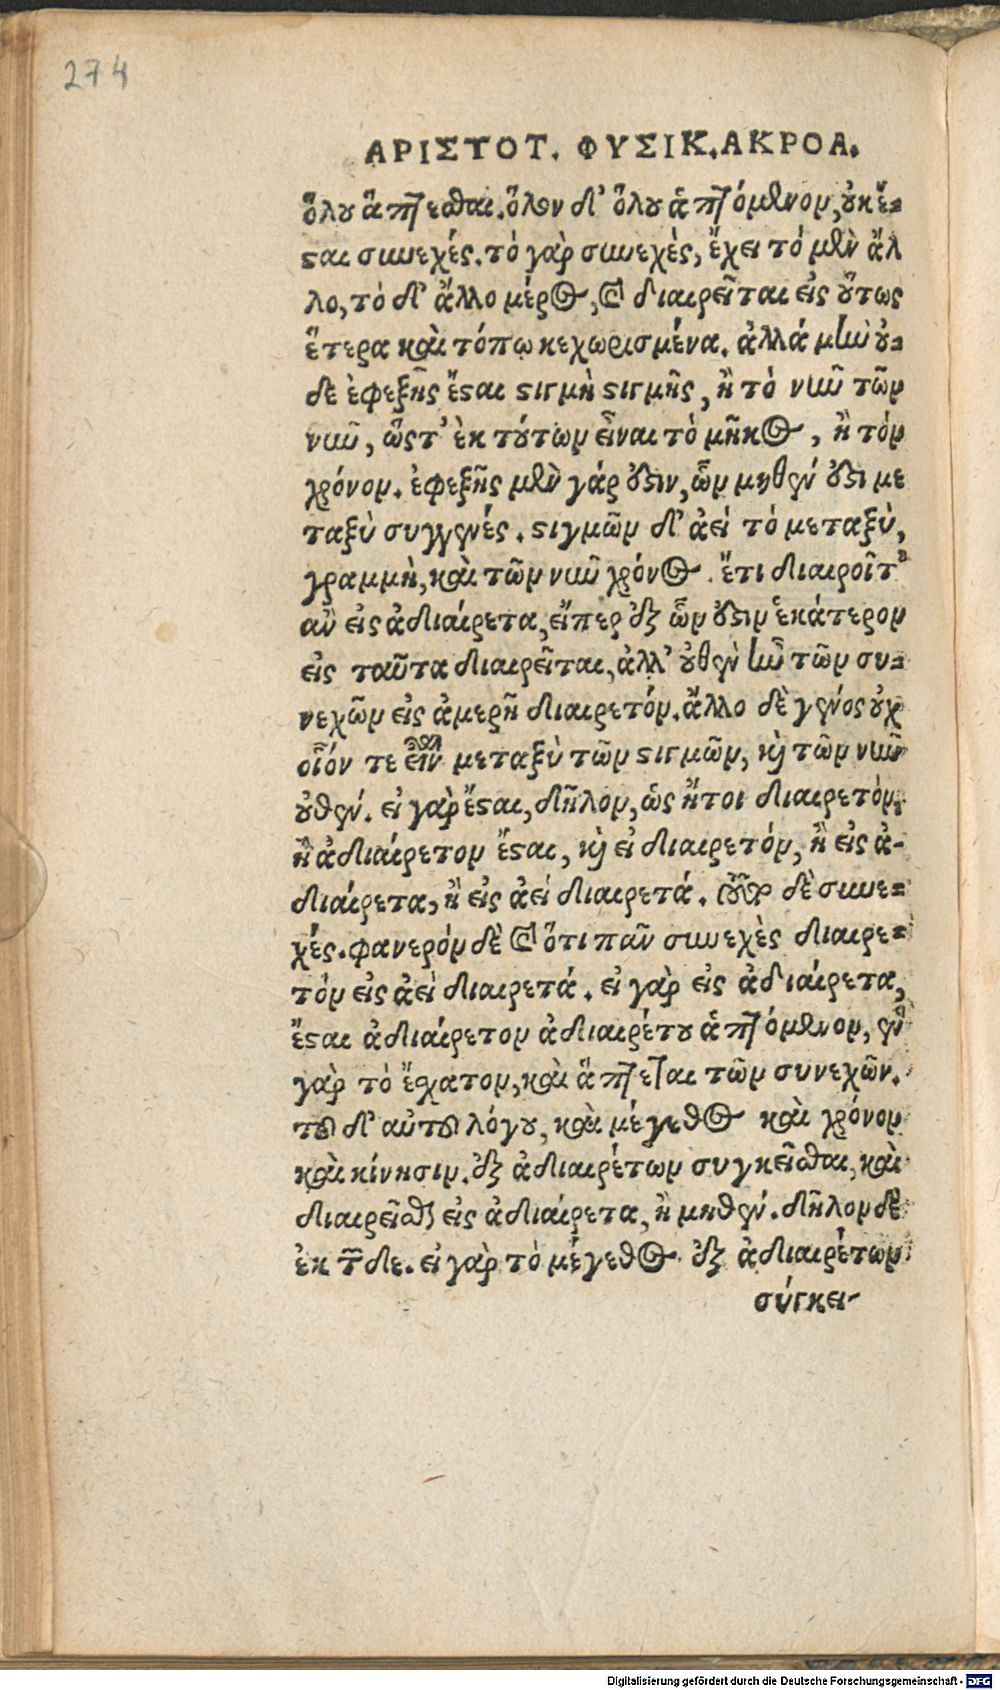 274
ΑΡΙΣΤΟΤ. ΦΥΣΙΚ. ΑΚΡΟΑ.
ὅλου ἅπτεσθαι. ὅλον δ' ὅλου ἁπτόμενον, οὐκ ἔ=
σται συνεχές. τὸ γὰρ συνεχὲς, ἔχει τὸ μὲν ἄλ
λο, τὸ δ' ἄλλο μέρος, καὶ διαιρεῖται εἰς οὕτως
ἕτερα καὶ τόπῳ κεχωρισμένα. ἀλλά μὴν οὐ=
δὲ ἐφεξῆς ἔσται στιγμὴ στιγμῆς, ἢ τὸ νῦν τῶν
νῦν, ὥστ' ἐκ τούτων εἶναι τὸ μῆκος, ἢ τὸν
χρόνον. ἐφεξῆς μὲν γάρ ὅστιν, ὧν μηθέν ὅστι με
ταξὺ συγγενές. στιγμῶν δ' ἀεί τὸ μεταξὺ,
γραμμὴ, καὶ τῶν νῦν χρόνος. ἔτι διαιροῖτ'
ἂν εἰς ἀδιαίρετα, εἴπερ ἐξ ὧν ὅστιν ἑκάτερον
εἰς ταῦτα διαιρεῖται, ἀλλ' οὐθὲν ἦν τῶν συ=
νεχῶν εἰς ἀμερῆ διαιρετόν. ἄλλο δὲ γένος οὐχ
οἷόν τε εἶναι μεταξὺ τῶν στιγμῶν, καὶ τῶν νῦν
οὐθέν. εἰ γὰρ ἔσται, δῆλον, ὡς ἤτοι διαιρετὸν,
ἢ ἀδιαίρετον ἔσται, καὶ εἰ διαιρετόν, ἢ εἰς ἀ-
διαίρετα, ἢ εἰς ἀεί διαιρετά. τοῦτο δὲ συνε=
χές. φανερόν δὲ καὶ ὅτι πᾶν συνεχὲς διαιρε=
τόν εἰς ἀεὶ διαιρετά. εἰ γὰρ εἰς ἀδιαίρετα,
ἔσται ἀδιαίρετον ἀδιαιρέτου ἁπτόμενον, ἓν
γὰρ τὸ ἔσχατον, καὶ ἅπτεται τῶν συνεχῶν.
τοῦ δ' αὐτοῦ λόγου, καὶ μέγεθος καὶ χρόνον
καὶ κίνησιν. ἐξ ἀδιαιρέτων συγκεῖσθαι, καὶ
διαιρεῖσθαι εἰς ἀδιαίρετα, ἢ μηθέν. δῆλον δὲ
ἐκ τῶνδε. εἰ γὰρ τὸ μέγεθος ἐξ ἀδιαιρέτων
σύγκει-
Digitalisierung gefördert durch die Deutsche Forschungsgemeinschaft - DFG